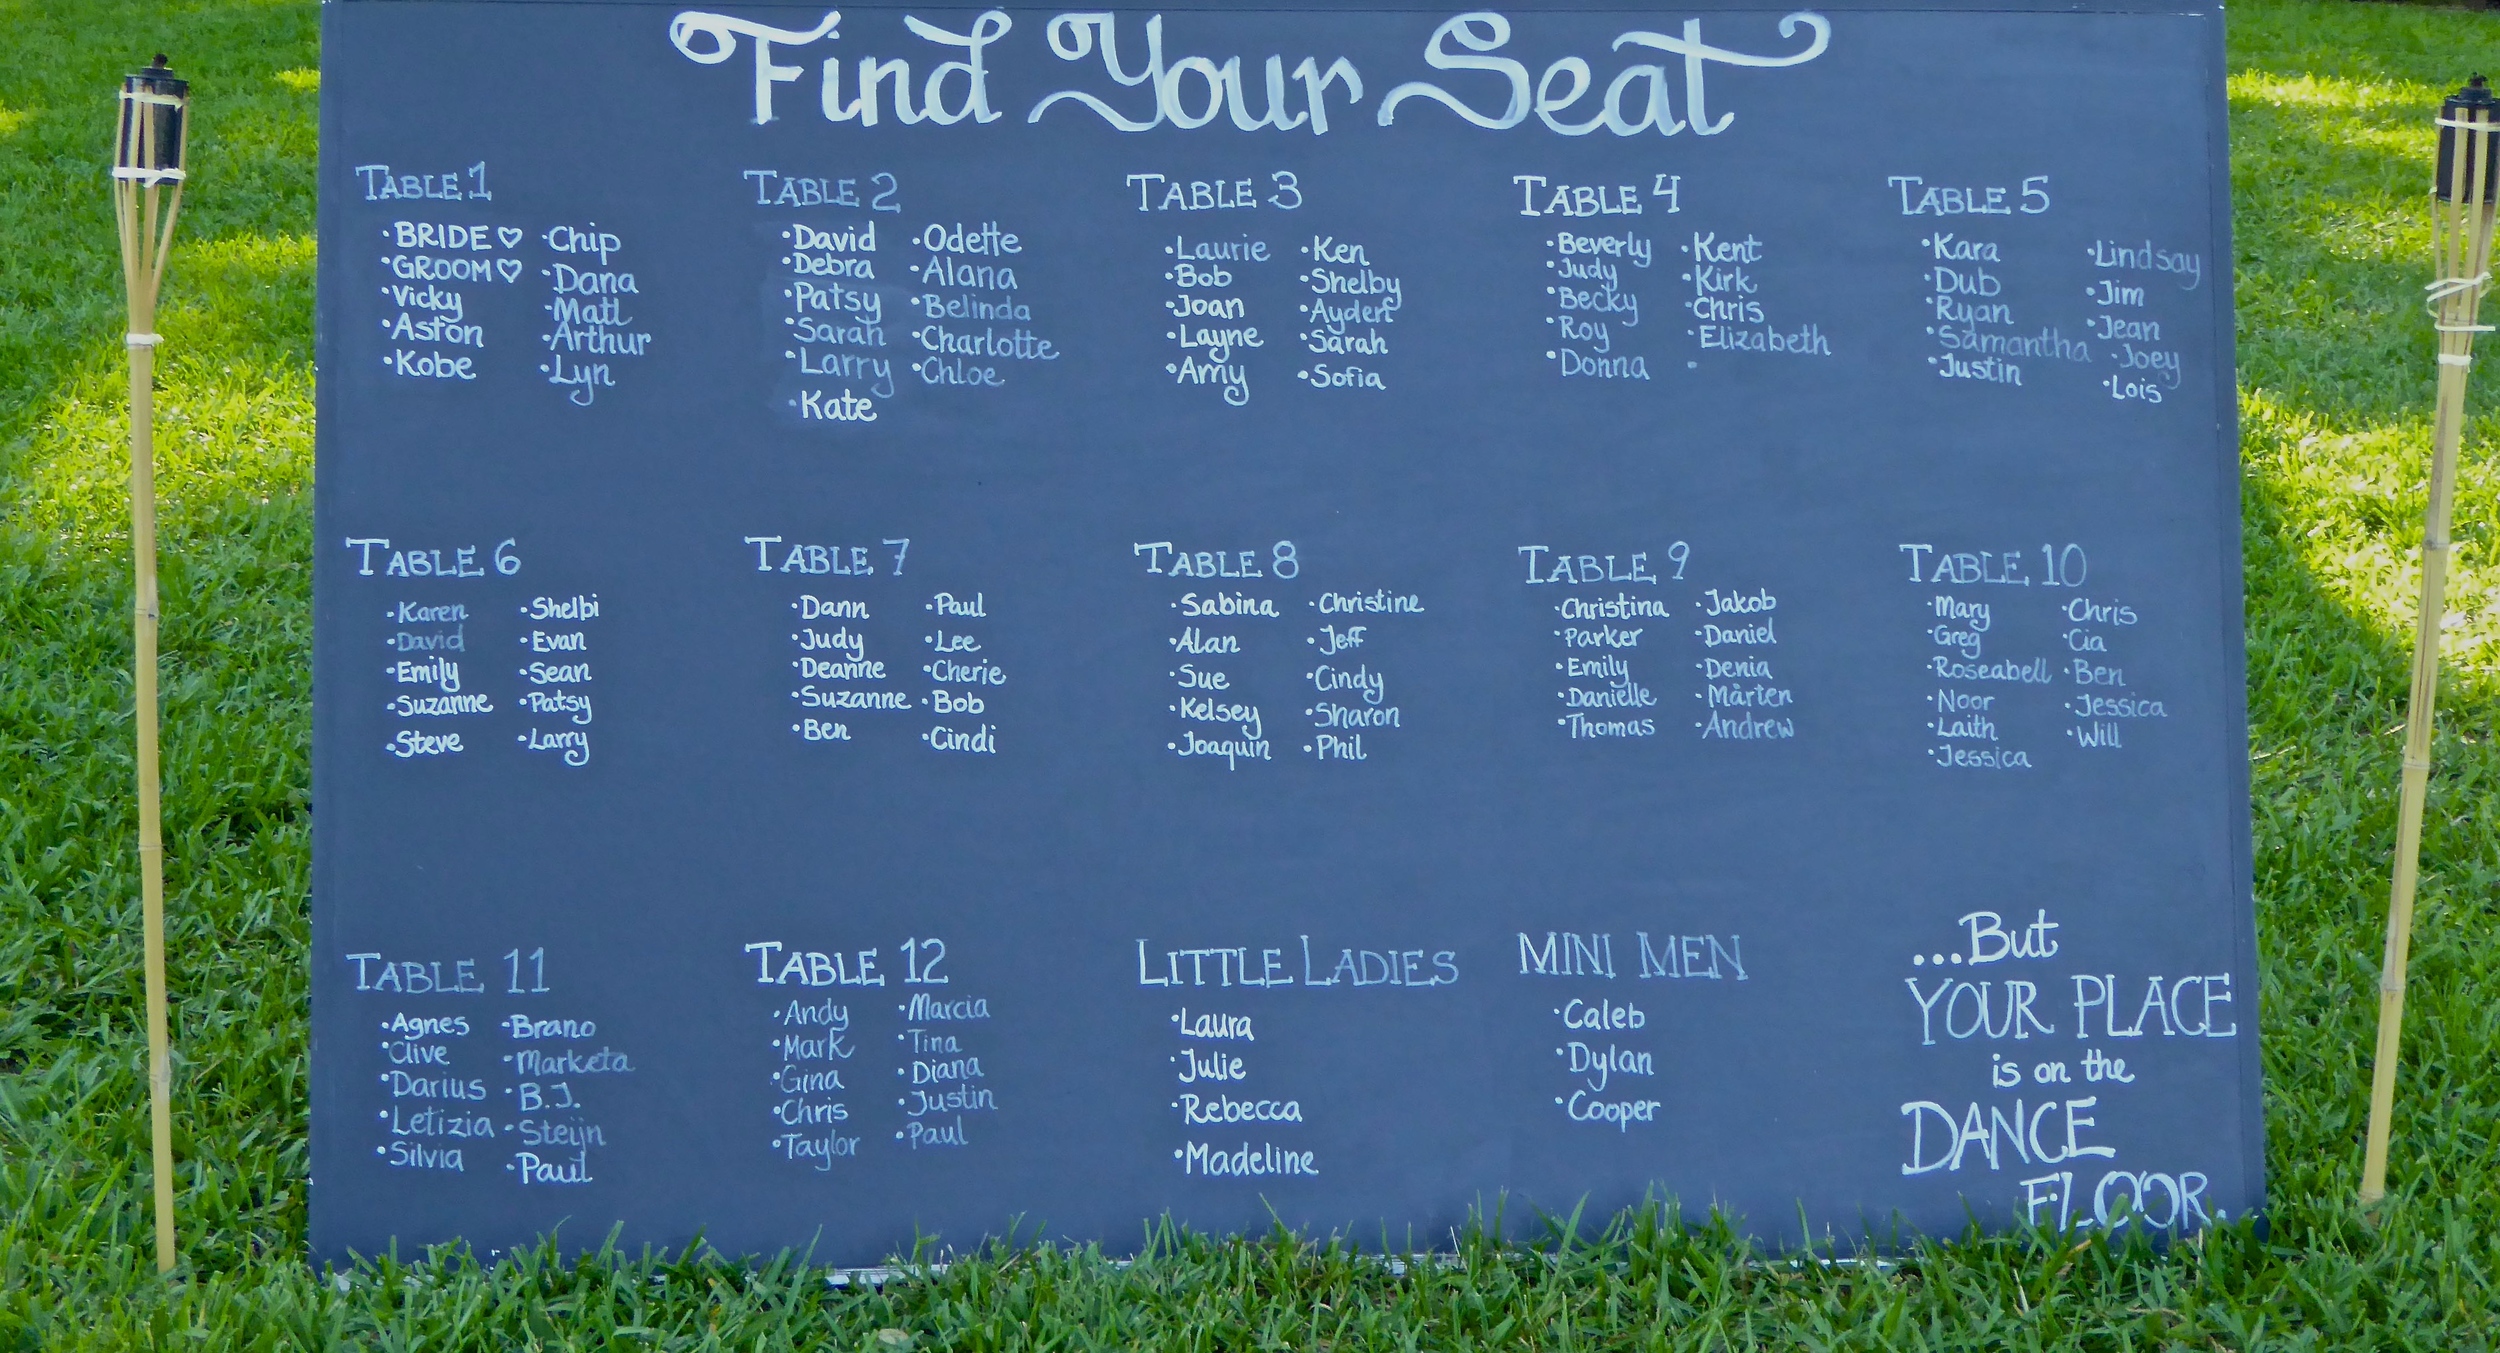 Find Your Seat
TABLE 1
·BRIDE♡
·GROOM♡
·Vicky
·Aston
·Kobe
·Chip
·Dana
·Matt
·Arthur
·Lyn
TABLE 2
·David
·Debra
·Patsy
·Sarah
·Larry
·Kate
·Odette
·Alana
·Belinda
·Charlotte
·Chloe
TABLE 3
·Laurie
·Bob
·Joan
·Layne
·Amy
·Ken
·Shelby
·Ayden
·Sarah
·Sofia
TABLE 4
·Beverly
·Judy
·Becky
·Roy
·Donna
·Kent
·Kirk
·Chris
·Elizabeth
·
TABLE 5
·Kara
·Dub
·Ryan
·Samantha
·Justin
·Lindsay
·Jim
·Jean
·Joey
·Lois
TABLE 6
·Karen
·David
·Emily
·Suzanne
·Steve
·Shelbi
·Evan
·Sean
·Patsy
·Larry
TABLE 7
·Dann
·Judy
·Deanne
·Suzanne
·Ben
·Paul
·Lee
·Cherie
·Bob
·Cindi
TABLE 8
·Sabina
·Alan
·Sue
·Kelsey
·Joaquin
·Christine
·Jeff
·Cindy
·Sharon
·Phil
TABLE 9
·Christina
·Parker
·Emily
·Danielle
·Thomas
·Jakob
·Daniel
·Denia
·Mårten
·Andrew
TABLE 10
·Mary
·Greg
·Roseabell
·Noor
·Laith
·Jessica
·Chris
·Cia
·Ben
·Jessica
·Will
TABLE 11
·Agnes
·Clive
·Darius
·Letizia
·Silvia
·Brano
·Marketa
·B.J.
·Steijn
·Paul
TABLE 12
·Andy
·Mark
·Gina
·Chris
·Taylor
·Marcia
·Tina
·Diana
·Justin
·Paul
LITTLE LADIES
·Laura
·Julie
·Rebecca
·Madeline
MINI MEN
·Caleb
·Dylan
·Cooper
...But
YOUR PLACE
is on the
DANCE
FLOOR.